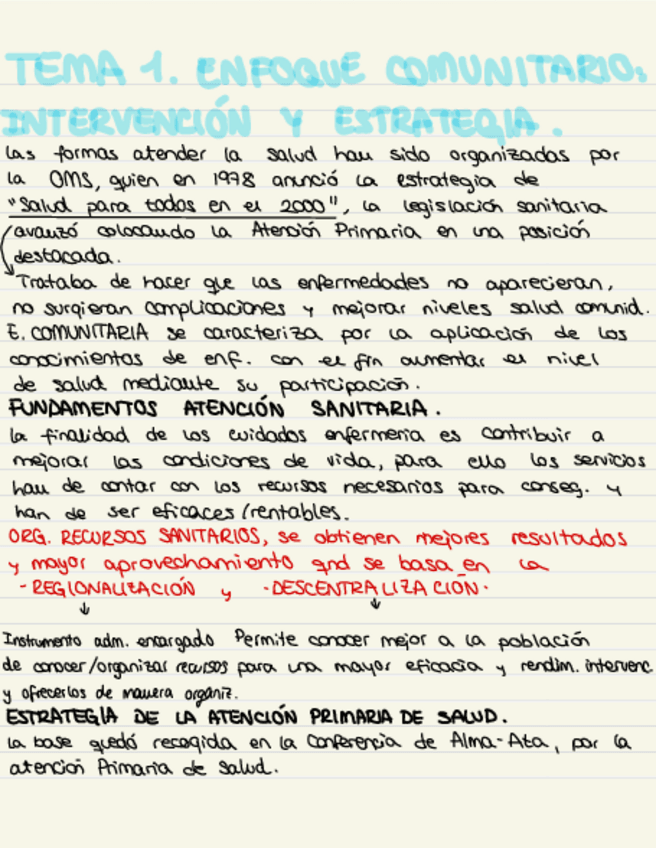 TEMA 1. ENFOQUE COMUNITARIO:
INTERVENCIÓN Y ESTRATEGIA.
Las formas atender la salud han sido organizadas por
la OMS, quien en 1978 anunció la estrategia de
"Salud para todos en el 2000", la legislación sanitaria
avanzó colocando la Atención Primaria en una posición
destacada.
Trataba de hacer que las enfermedades no aparecieran,
no surgieran complicaciones y mejorar niveles salud comunid.
E. COMUNITARIA se caracteriza por la aplicación de los
conocimientos de enf. con el fin aumentar el nivel
de salud mediante su participación.
FUNDAMENTOS ATENCIÓN SANITARIA.
la finalidad de los cuidados enfermeria es contribuir a
mejorar las condiciones de vida, para ello los servicios
han de contar con los recursos necesarios para conseg. y
han de ser eficaces/rentables.
ORG. RECURSOS SANITARIOS, se obtienen mejores resultados
y mayor aprovechamiento qnd se basa en la
- REGIONALIZACIÓN y · DESCENTRALIZACIÓN ·
Instrumento adm. encargado Permite conocer mejor a la población
de conocer/organizar recursos para una mayor eficacia y rendim. intervenc
y ofrecerlos de manera organiz.
ESTRATEGIA DE LA ATENCIÓN PRIMARIA DE SALUD.
La base quedó recogida en la Conferencia de Alma-Ata, por la
atención Primaria de Salud.